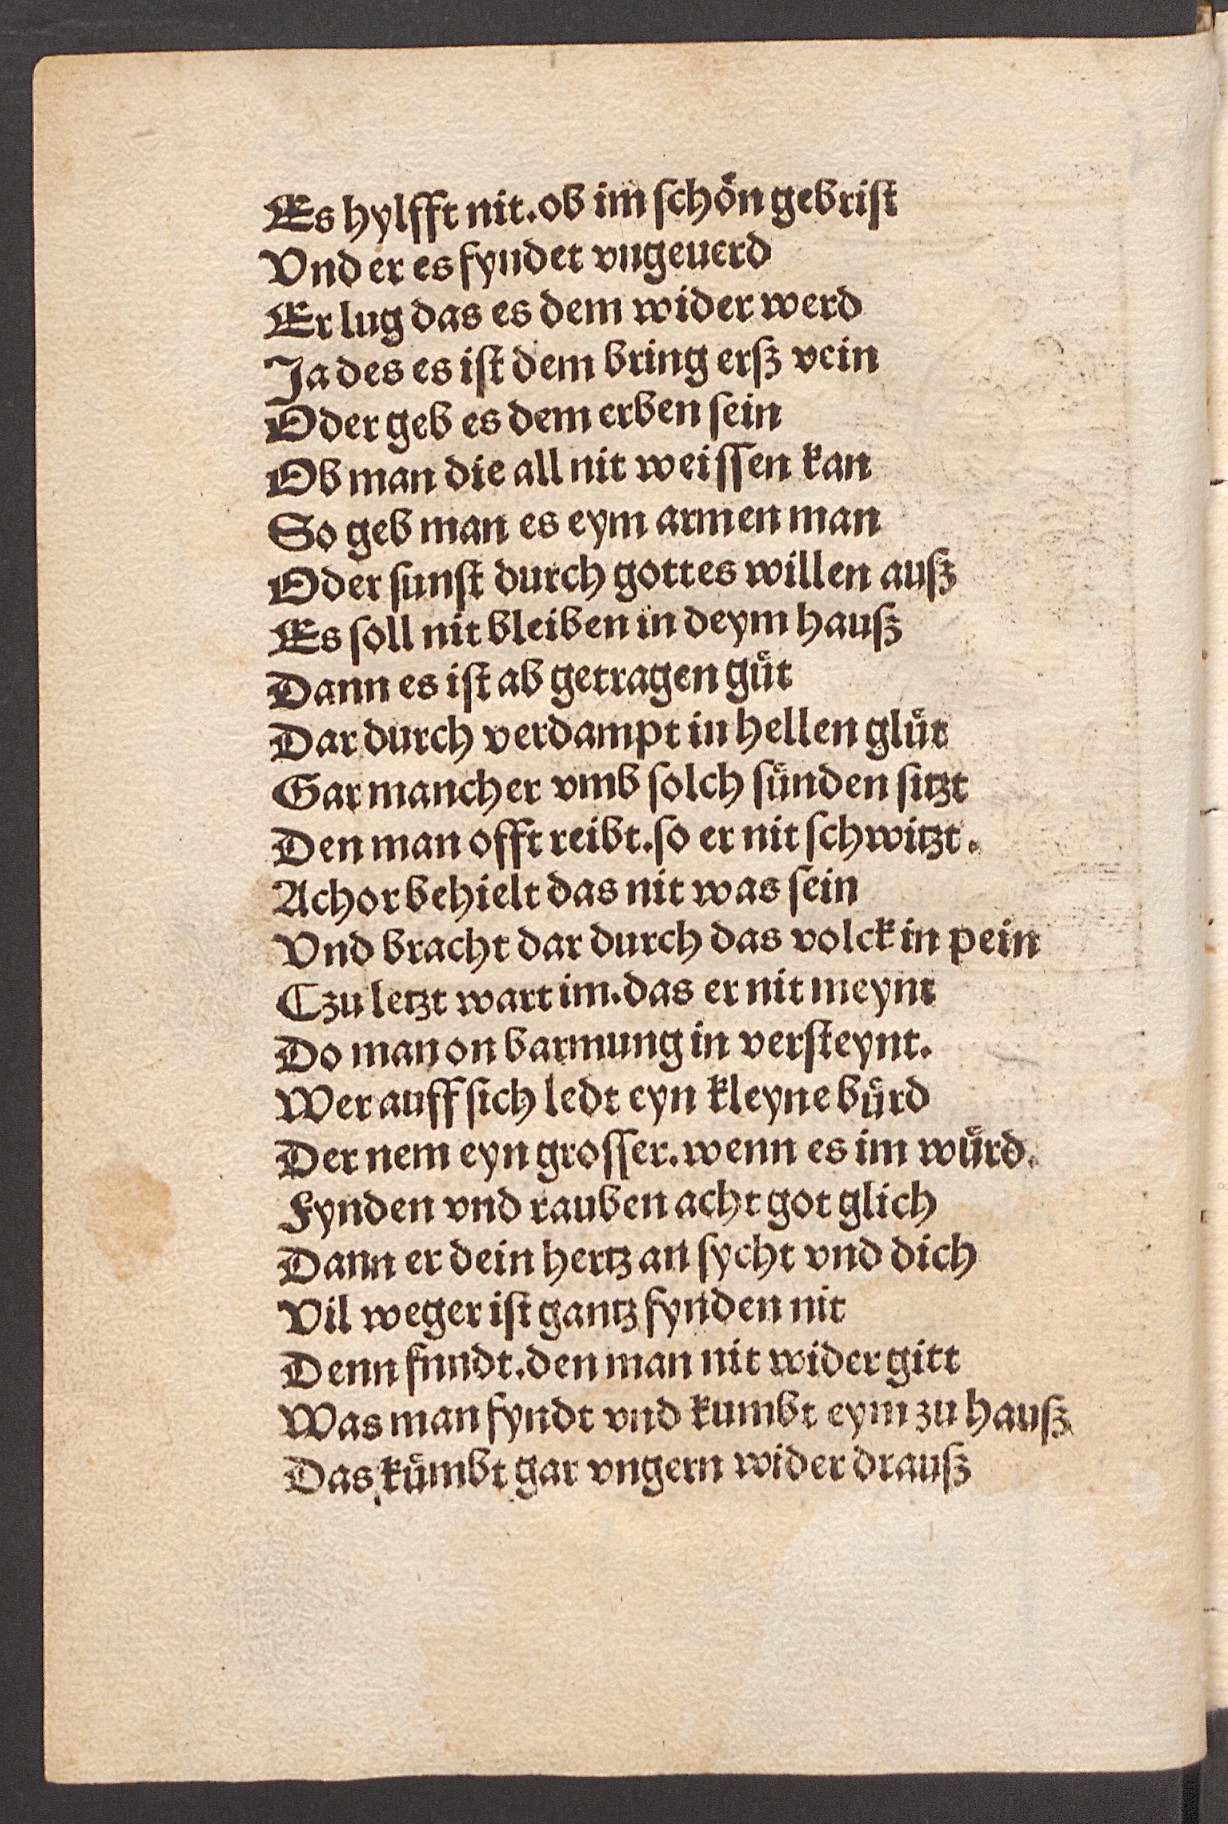 Es hylfft nit. ob im schön gebrist
Vnd er es fyndet vngeuerd
Er lug das es dem wider werd
Ja des es ist dem bring ersz vein
Oder geb es dem erben sein
Ob man die all nit weissen kan
So geb man es eym armen man
Oder sunst durch gottes willen ausz
Es soll nit bleiben in deym hausz
Dann es ist ab getragen guͤt
Dar durch verdampt in hellen gluͤt
Gar mancher vmb solch sünden sitzt
Den man offt reibt. so er nit schwitzt.
Achor behielt das nit was sein
Vnd bracht dar durch das volck in pein
Czu letzt wart im. das er nit meynt
Do man on barmung in versteynt.
Wer auff sich ledt eyn kleyne bürd
Der nem eyn grosser. wenn es im würd.
Fynden vnd rauben acht got glich
Dann er dein hertz an sycht vnd dich
Vil weger ist gantz fynden nit
Denn fnndt. den man nit wider gitt
Was man fyndt vnd kumbt eym zu hausz
Das kümbt gar vngern wider drausz